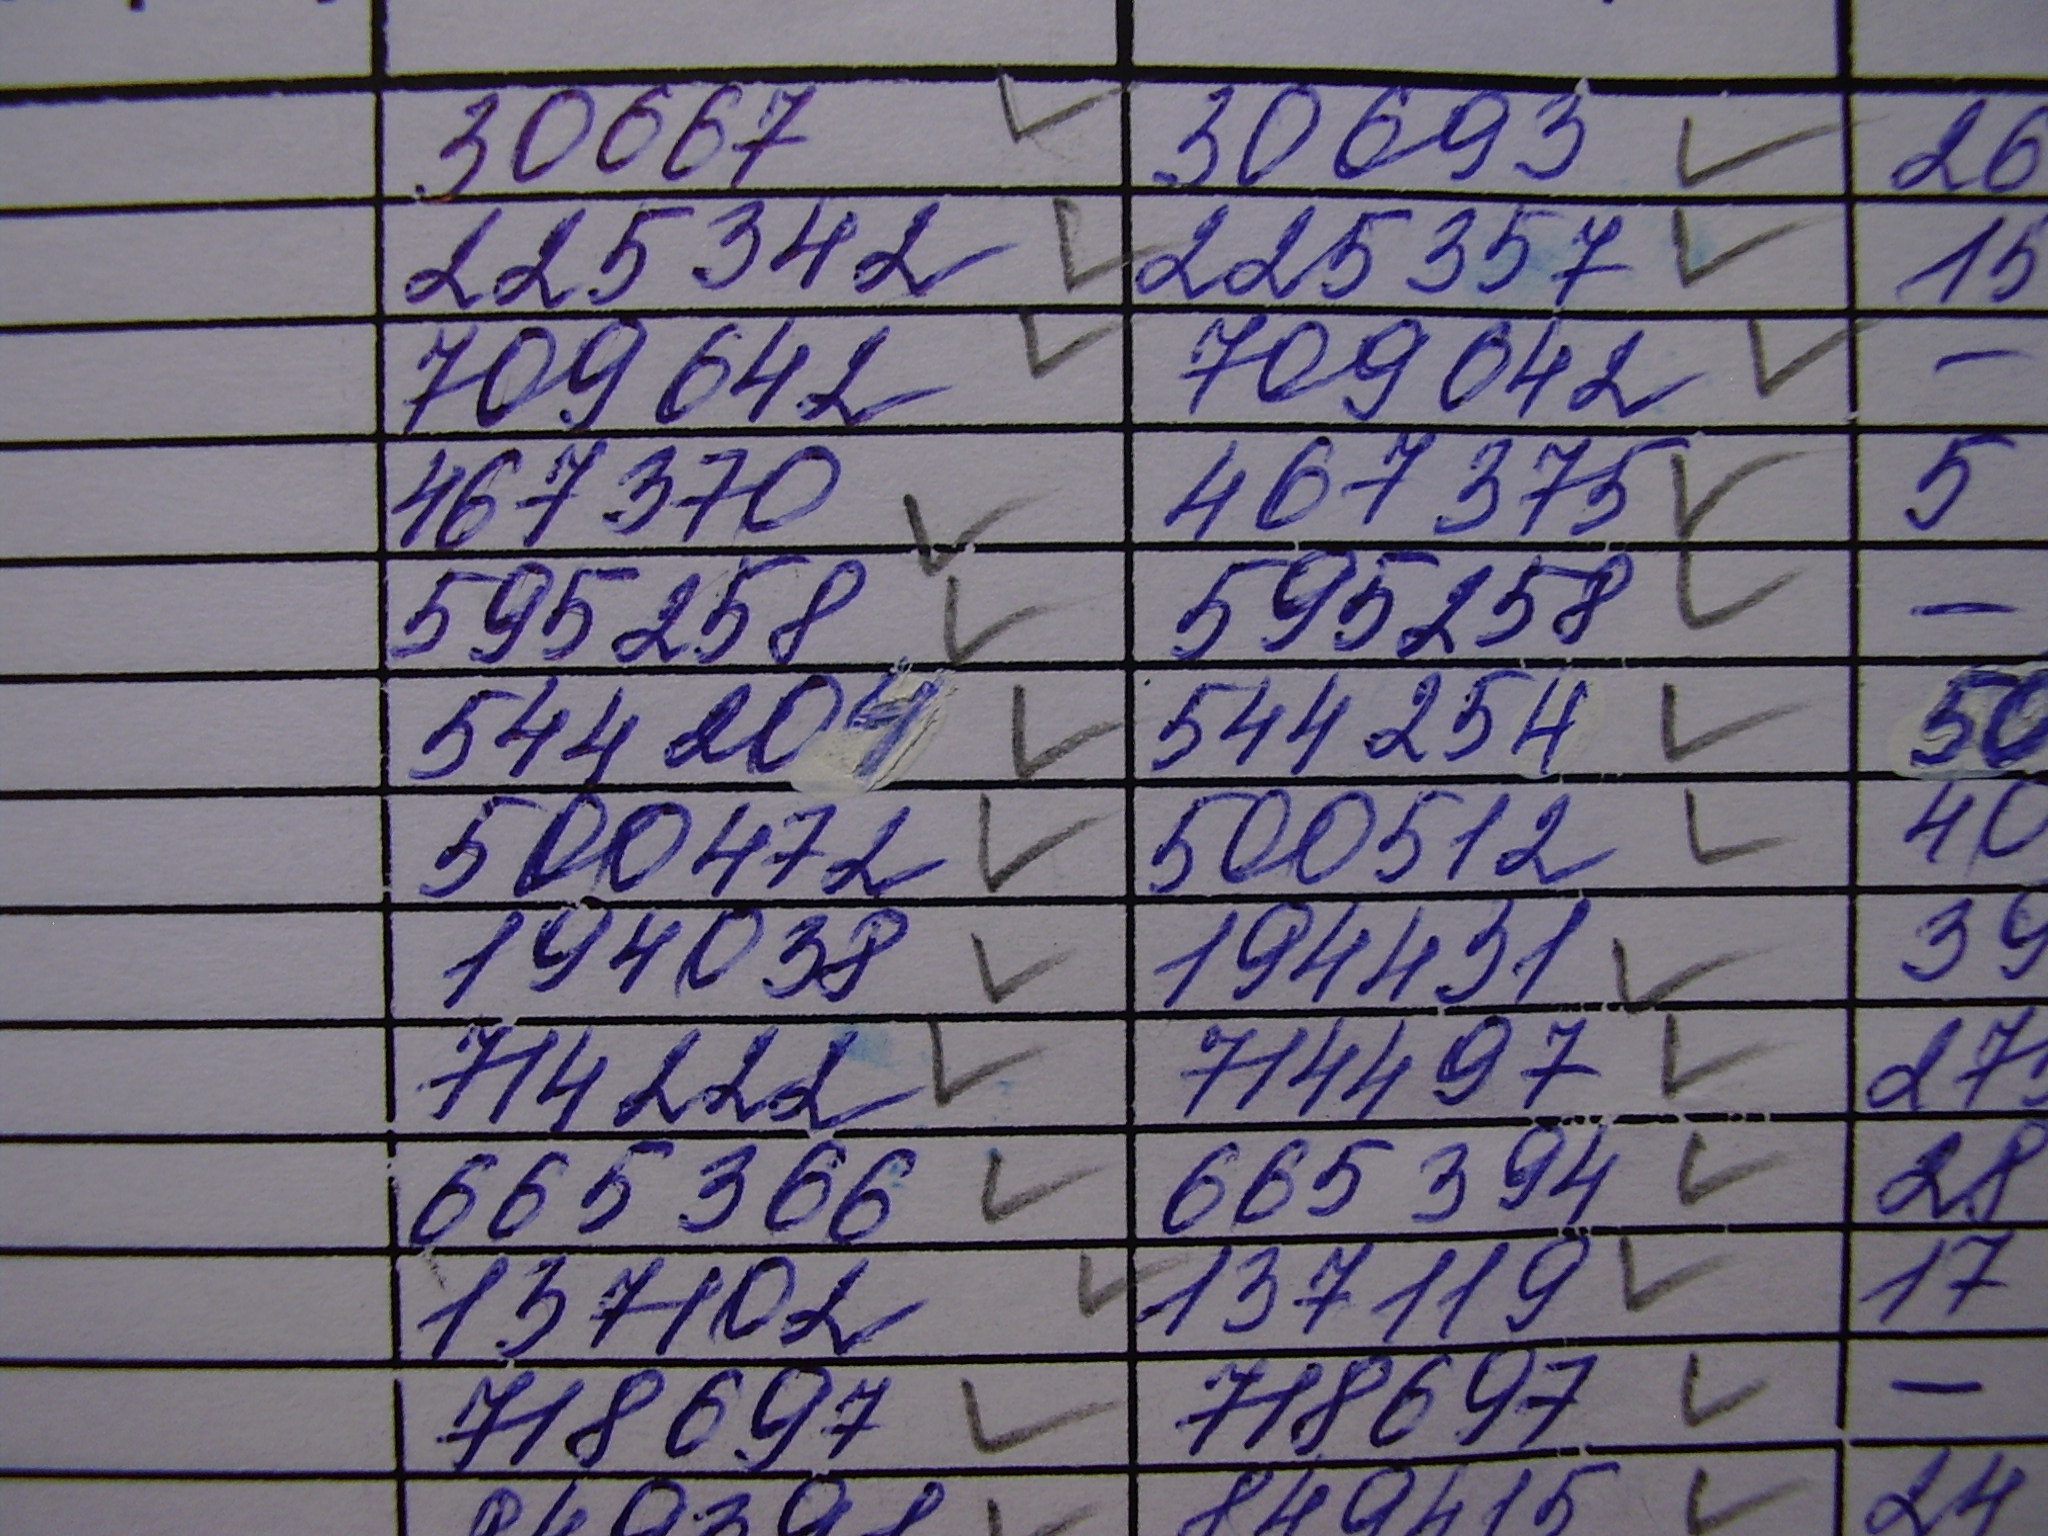 30667 30693 26
225342 225357 15
709642 709642 –
467370 467375 5
595258 595258 –
544204 544254 50
500472 500512 40
194038 194431 39
714222 714497 275
665366 665394 28
137102 137119 17
718697 718697 –
849415 24